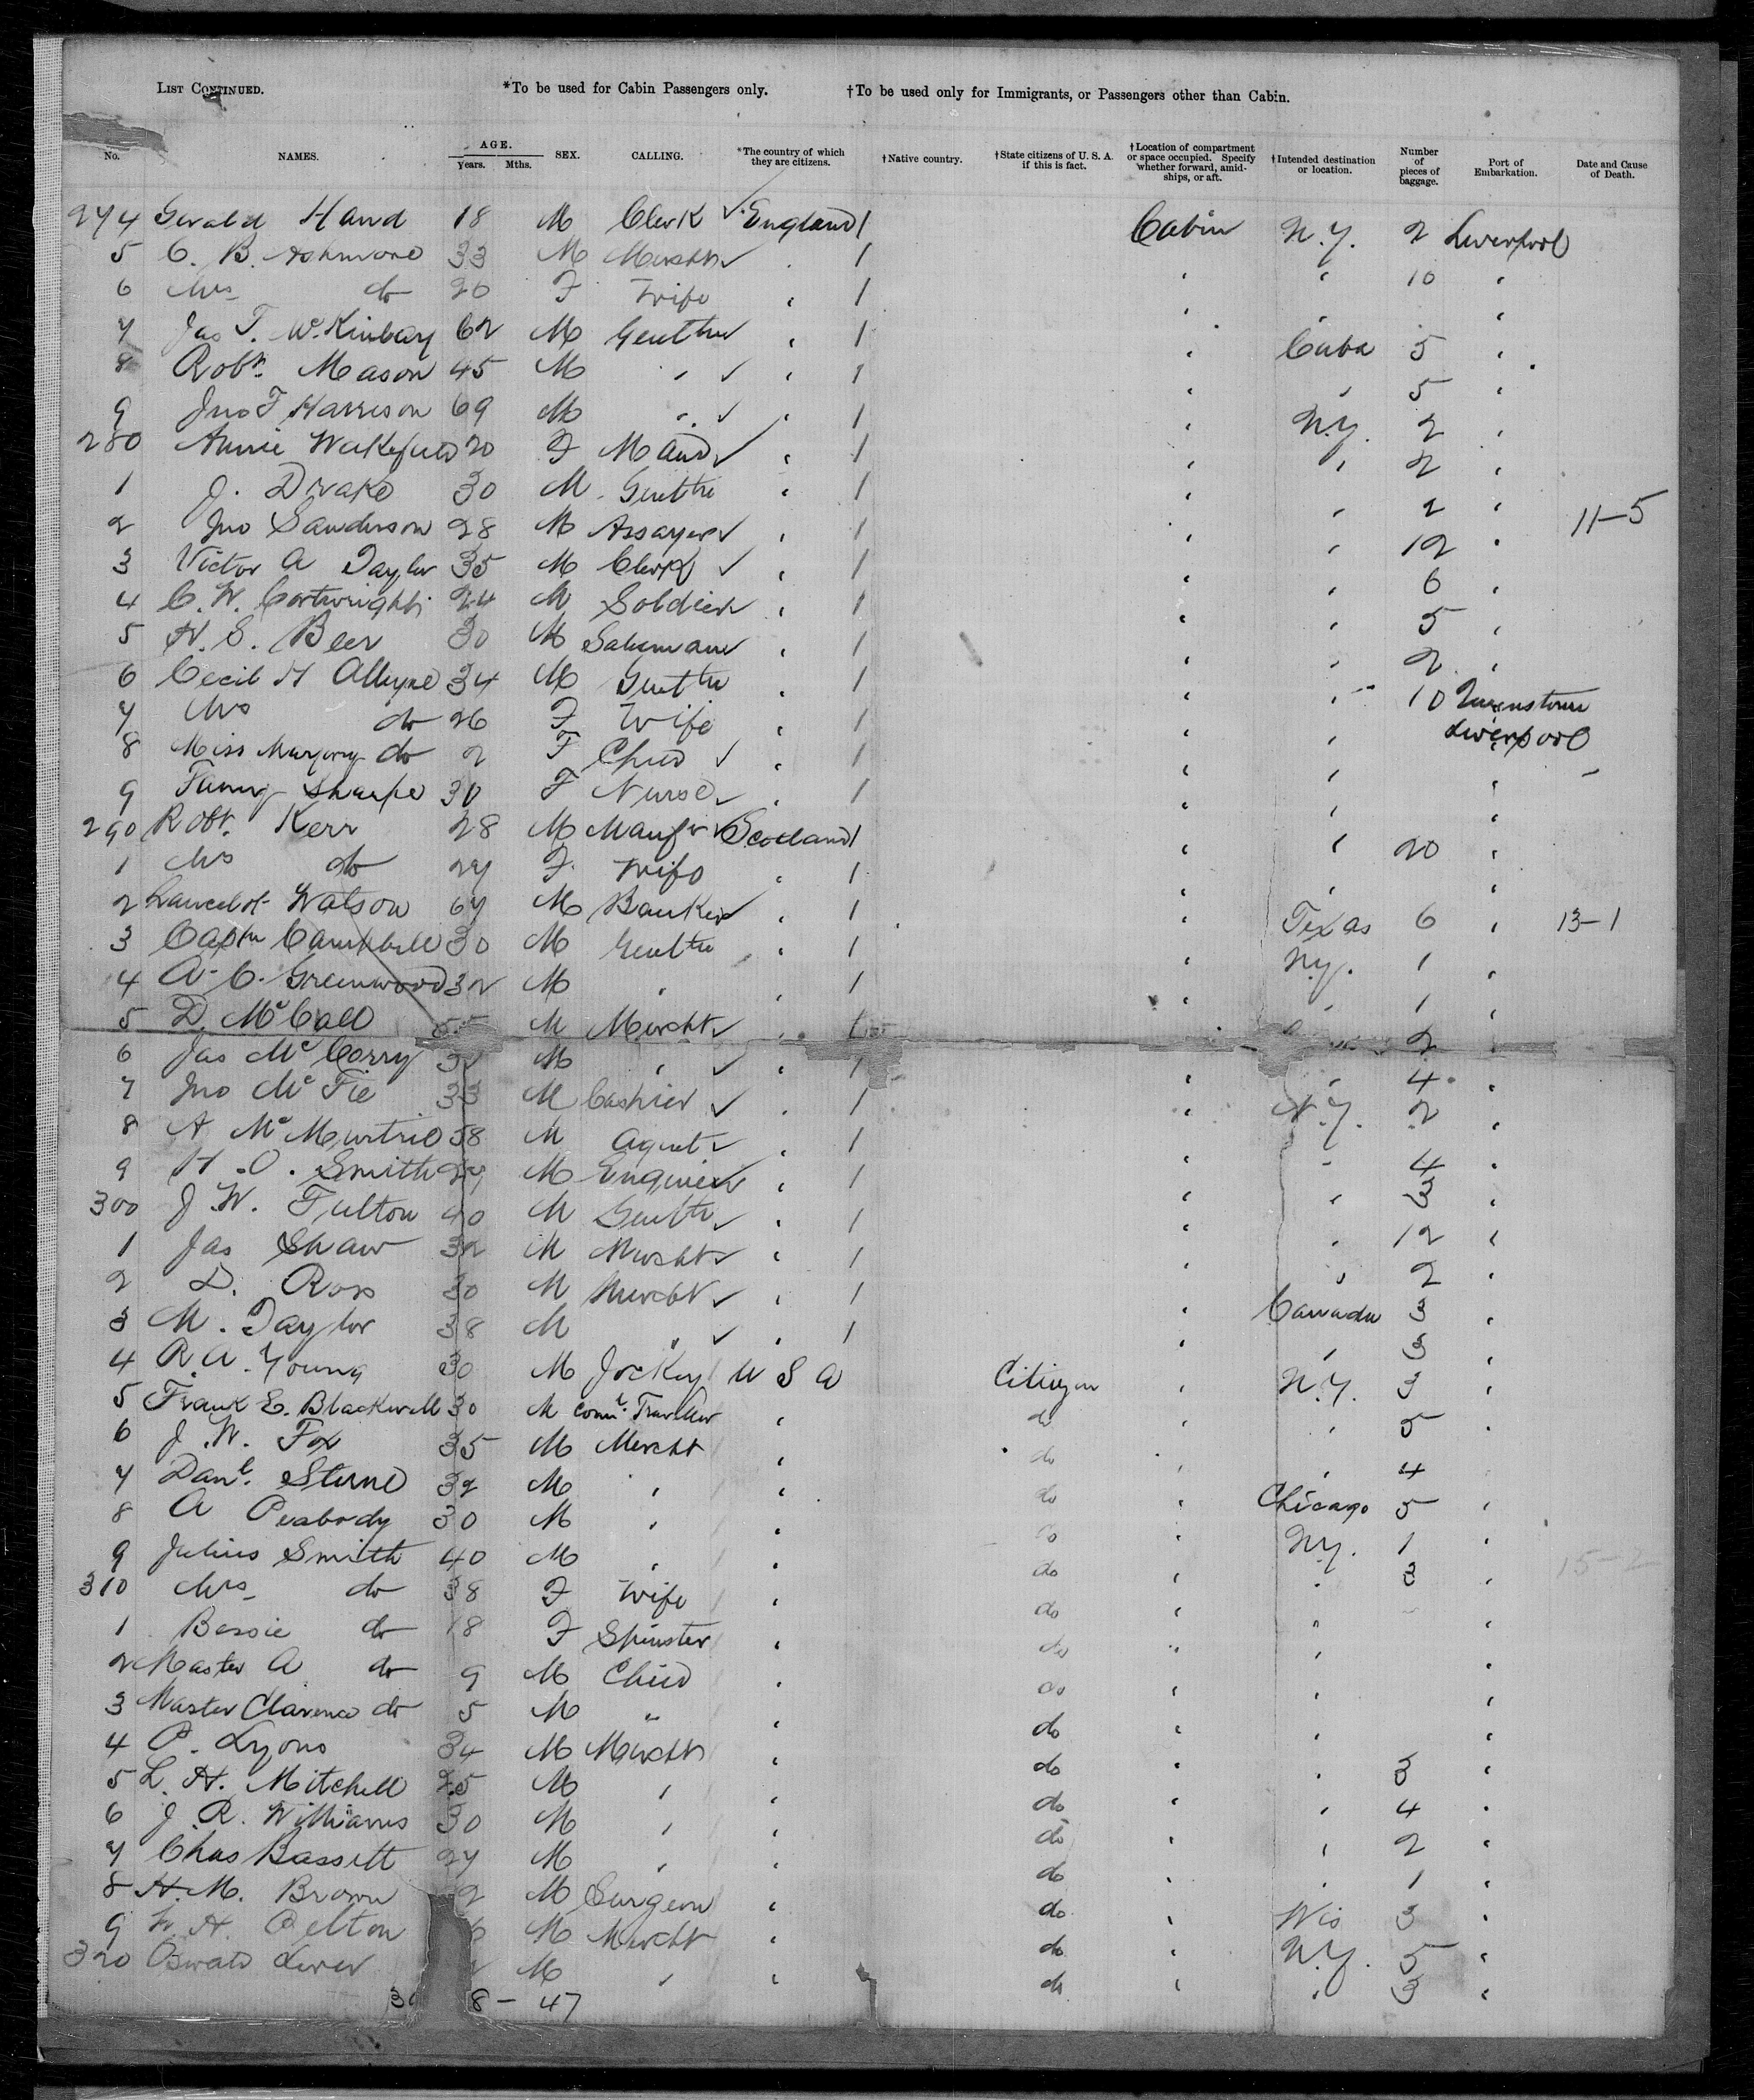 LIST CONTINUED. *To be used for Cabin Passengers only. †To be used only for Immigrants, or Passengers other than Cabin.
No. NAMES. AGE. Years. Mths. SEX. CALLING. *The country of which they are citizens. †Native country. †State citizens of U. S. A. if this is fact. †Location of compartment or space occupied. Specify whether forward, amidships, or aft. †Intended destination or location. Number of pieces of baggage. Port of Embarkation. Date and Cause of Death.
274 Gerald Hand 18 M Clerk England 1 Cabin N.Y. 2 Liverpool
5 C. B. Ashmore 33 M Mercht 1 10
6 Mrs do 20 F Wife 1
7 Jas T. 62 M Gentln 1 Cuba 5
8 Robt. Mason 45 M 1 5
9 Jno F Harrison 69 M 1 N.Y. 2
280 Annie Wakefield 20 F Maid 1 2
1 J. Drake 30 M Gentln 1 2 11-5
2 Jno Sanderson 28 M Assayer 1 12
3 Victor A Taylor 35 M Clerk 1 6
4 C. W. Cartwright 24 M Soldier 1 5
5 H. S. Beer 30 M Salesman 1 2
6 Cecil H Alleyne 34 M Gentln 1 10 Queenstown
7 Mrs do 26 F Wife 1 Liverpool
8 Miss Margery do 2 F Child 1
9 Fanny Sharpe 30 F Nurse 1
290 Robt. Kerr 28 M Manfr Scotland 1 20
1 Mrs do 27 F Wife 1
2 Lancelot Watson 67 M Banker 1 Texas 6 13-1
3 Captn Campbell 30 M Gentln 1 N.Y. 1
4 A. C. Greenwood 32 M 1 1
5 D. McCall M Mercht 1 2
6 Jas McCorry M 1 4
7 Jno McFie 33 M Cashier 1 N.Y. 2
8 A McMurtrie 58 M Agent 1 4
9 H. O. Smith M Engineer 1 3
300 J. W. Fulton 40 M Gentln 1 12
1 Jas Shaw 32 M Mercht 1 2
2 D. Ross 30 M Mercht 1 Canada 3
3 M. Taylor 38 M 1 3
4 R. A. Young 30 M Jockey U S A Citizen N.Y. 3
5 Frank E. Blackwell 30 M Comml. Traveller do 5
6 J. W. Fox 35 M Mercht do 4
7 Danl. Sterne 32 M do Chicago 5
8 A Peabody 30 M do N.Y. 1
9 Julius Smith 40 M do 3 15-2
310 Mrs do 38 F Wife do
1 Bessie do 18 F Spinster do
2 Master A do 9 M Child do
3 Master Clarence do 5 M do
4 P. Lyons 34 M Mercht do 3
5 L. H. Mitchell 25 M do 4
6 J. R. Williams 30 M do 2
7 Chas Bassett 27 M do 1
8 H. M. Brown M Surgeon do Wis 3
9 W. H. Pelton M Mercht do N.Y. 5
320 M do 3
8 - 47